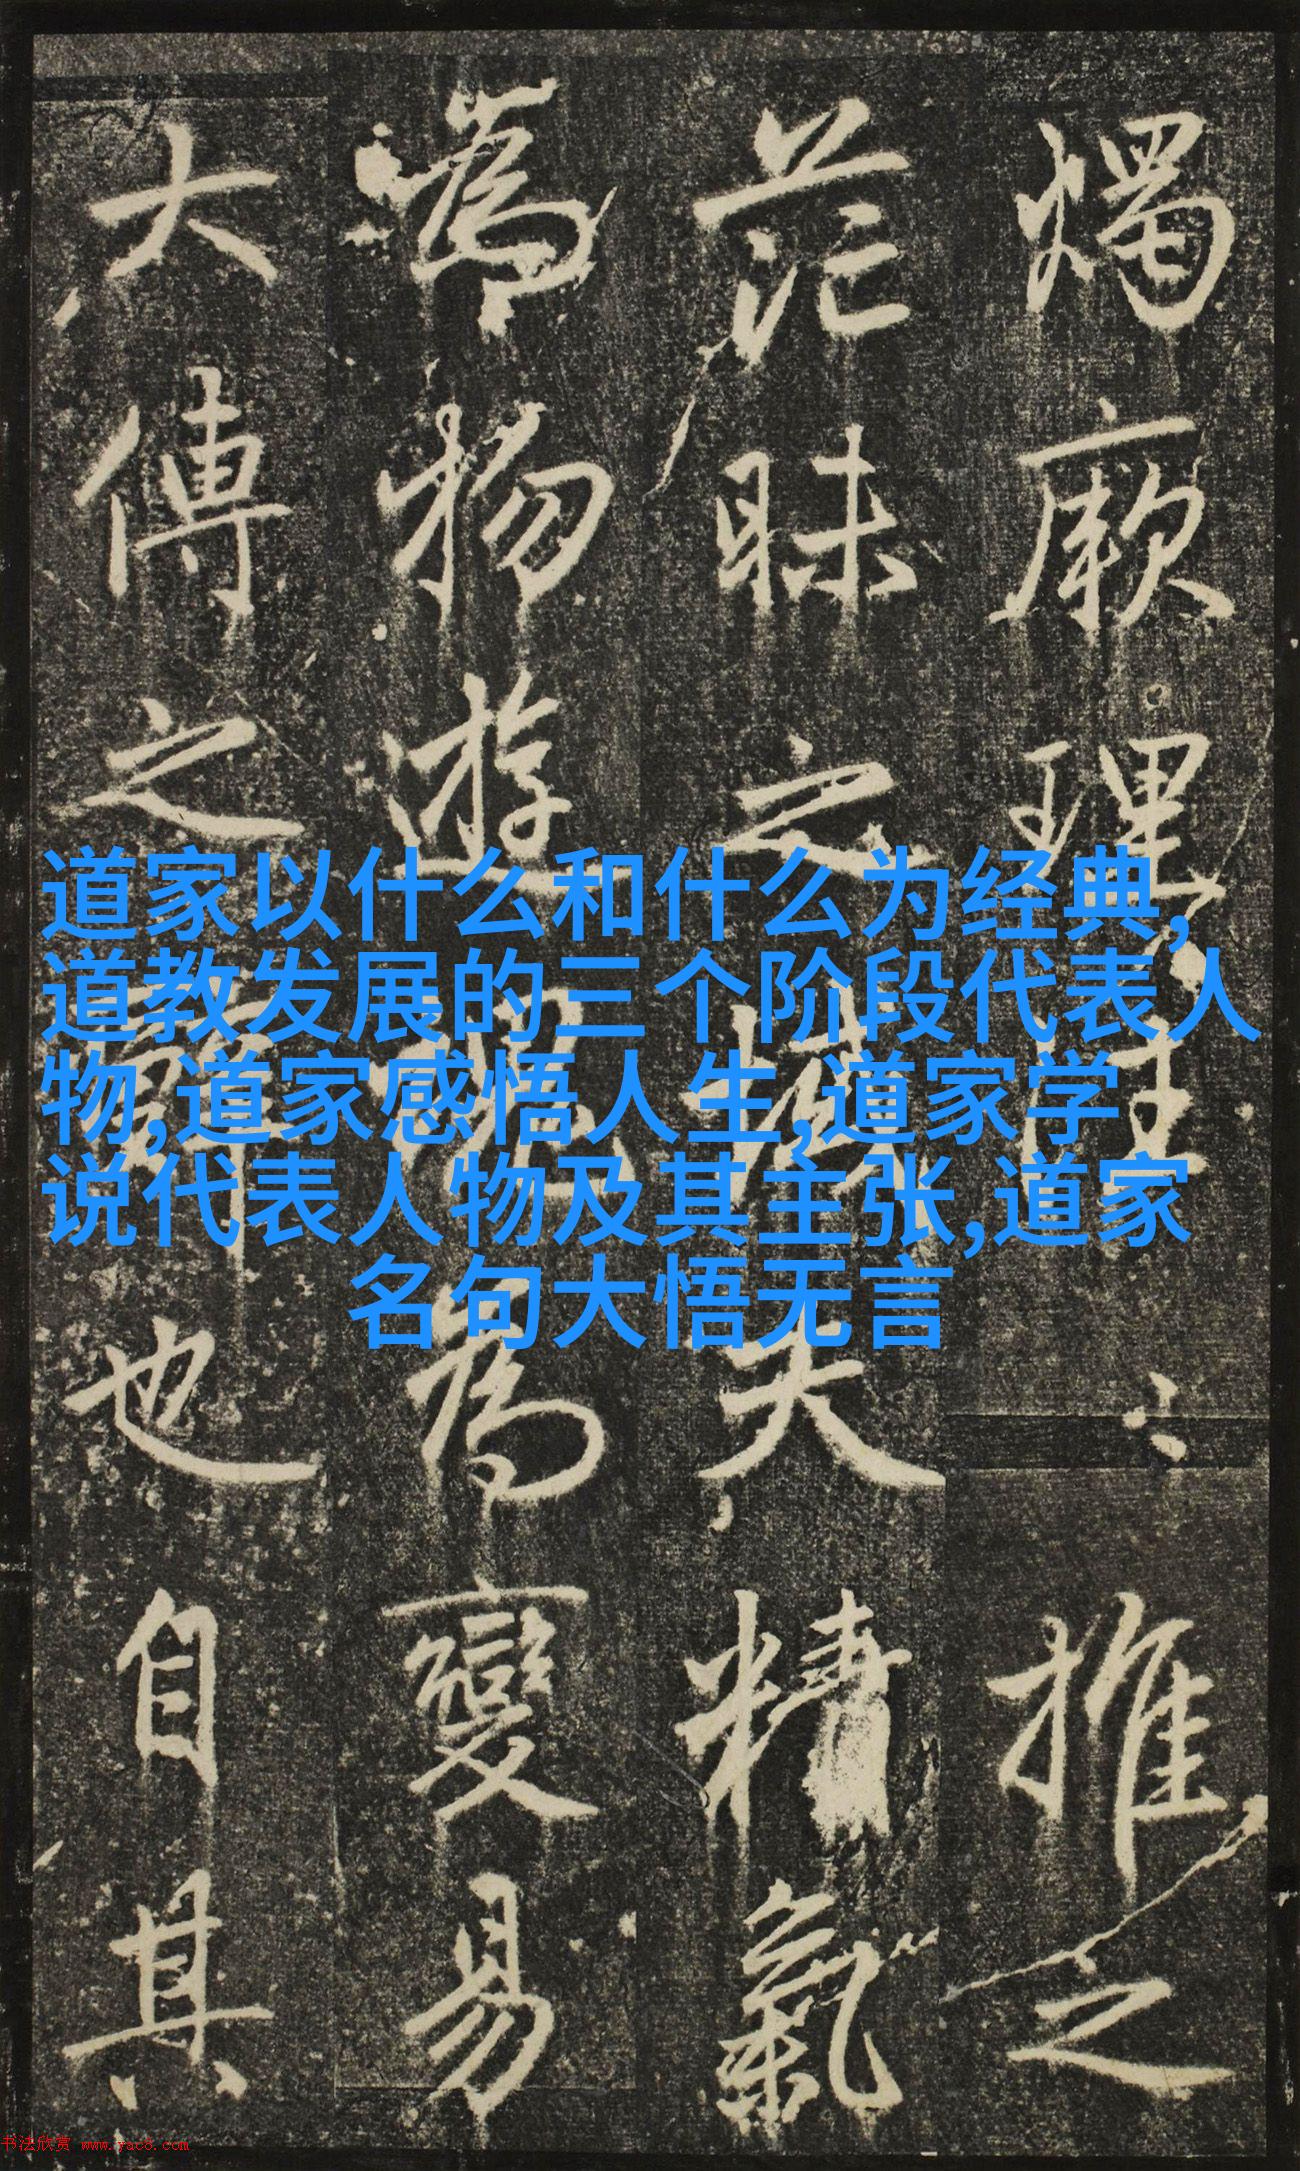 燭厥理
推之
茫昧之
夫精氣
為物遊
為變易
大傳之
也自其
道家以什么和什么为经典,
道教发展的三个阶段代表人
物,道家感悟人生,道家学
说代表人物及其主张,道家
名句大悟无言
书法欣赏 www.yac8.com